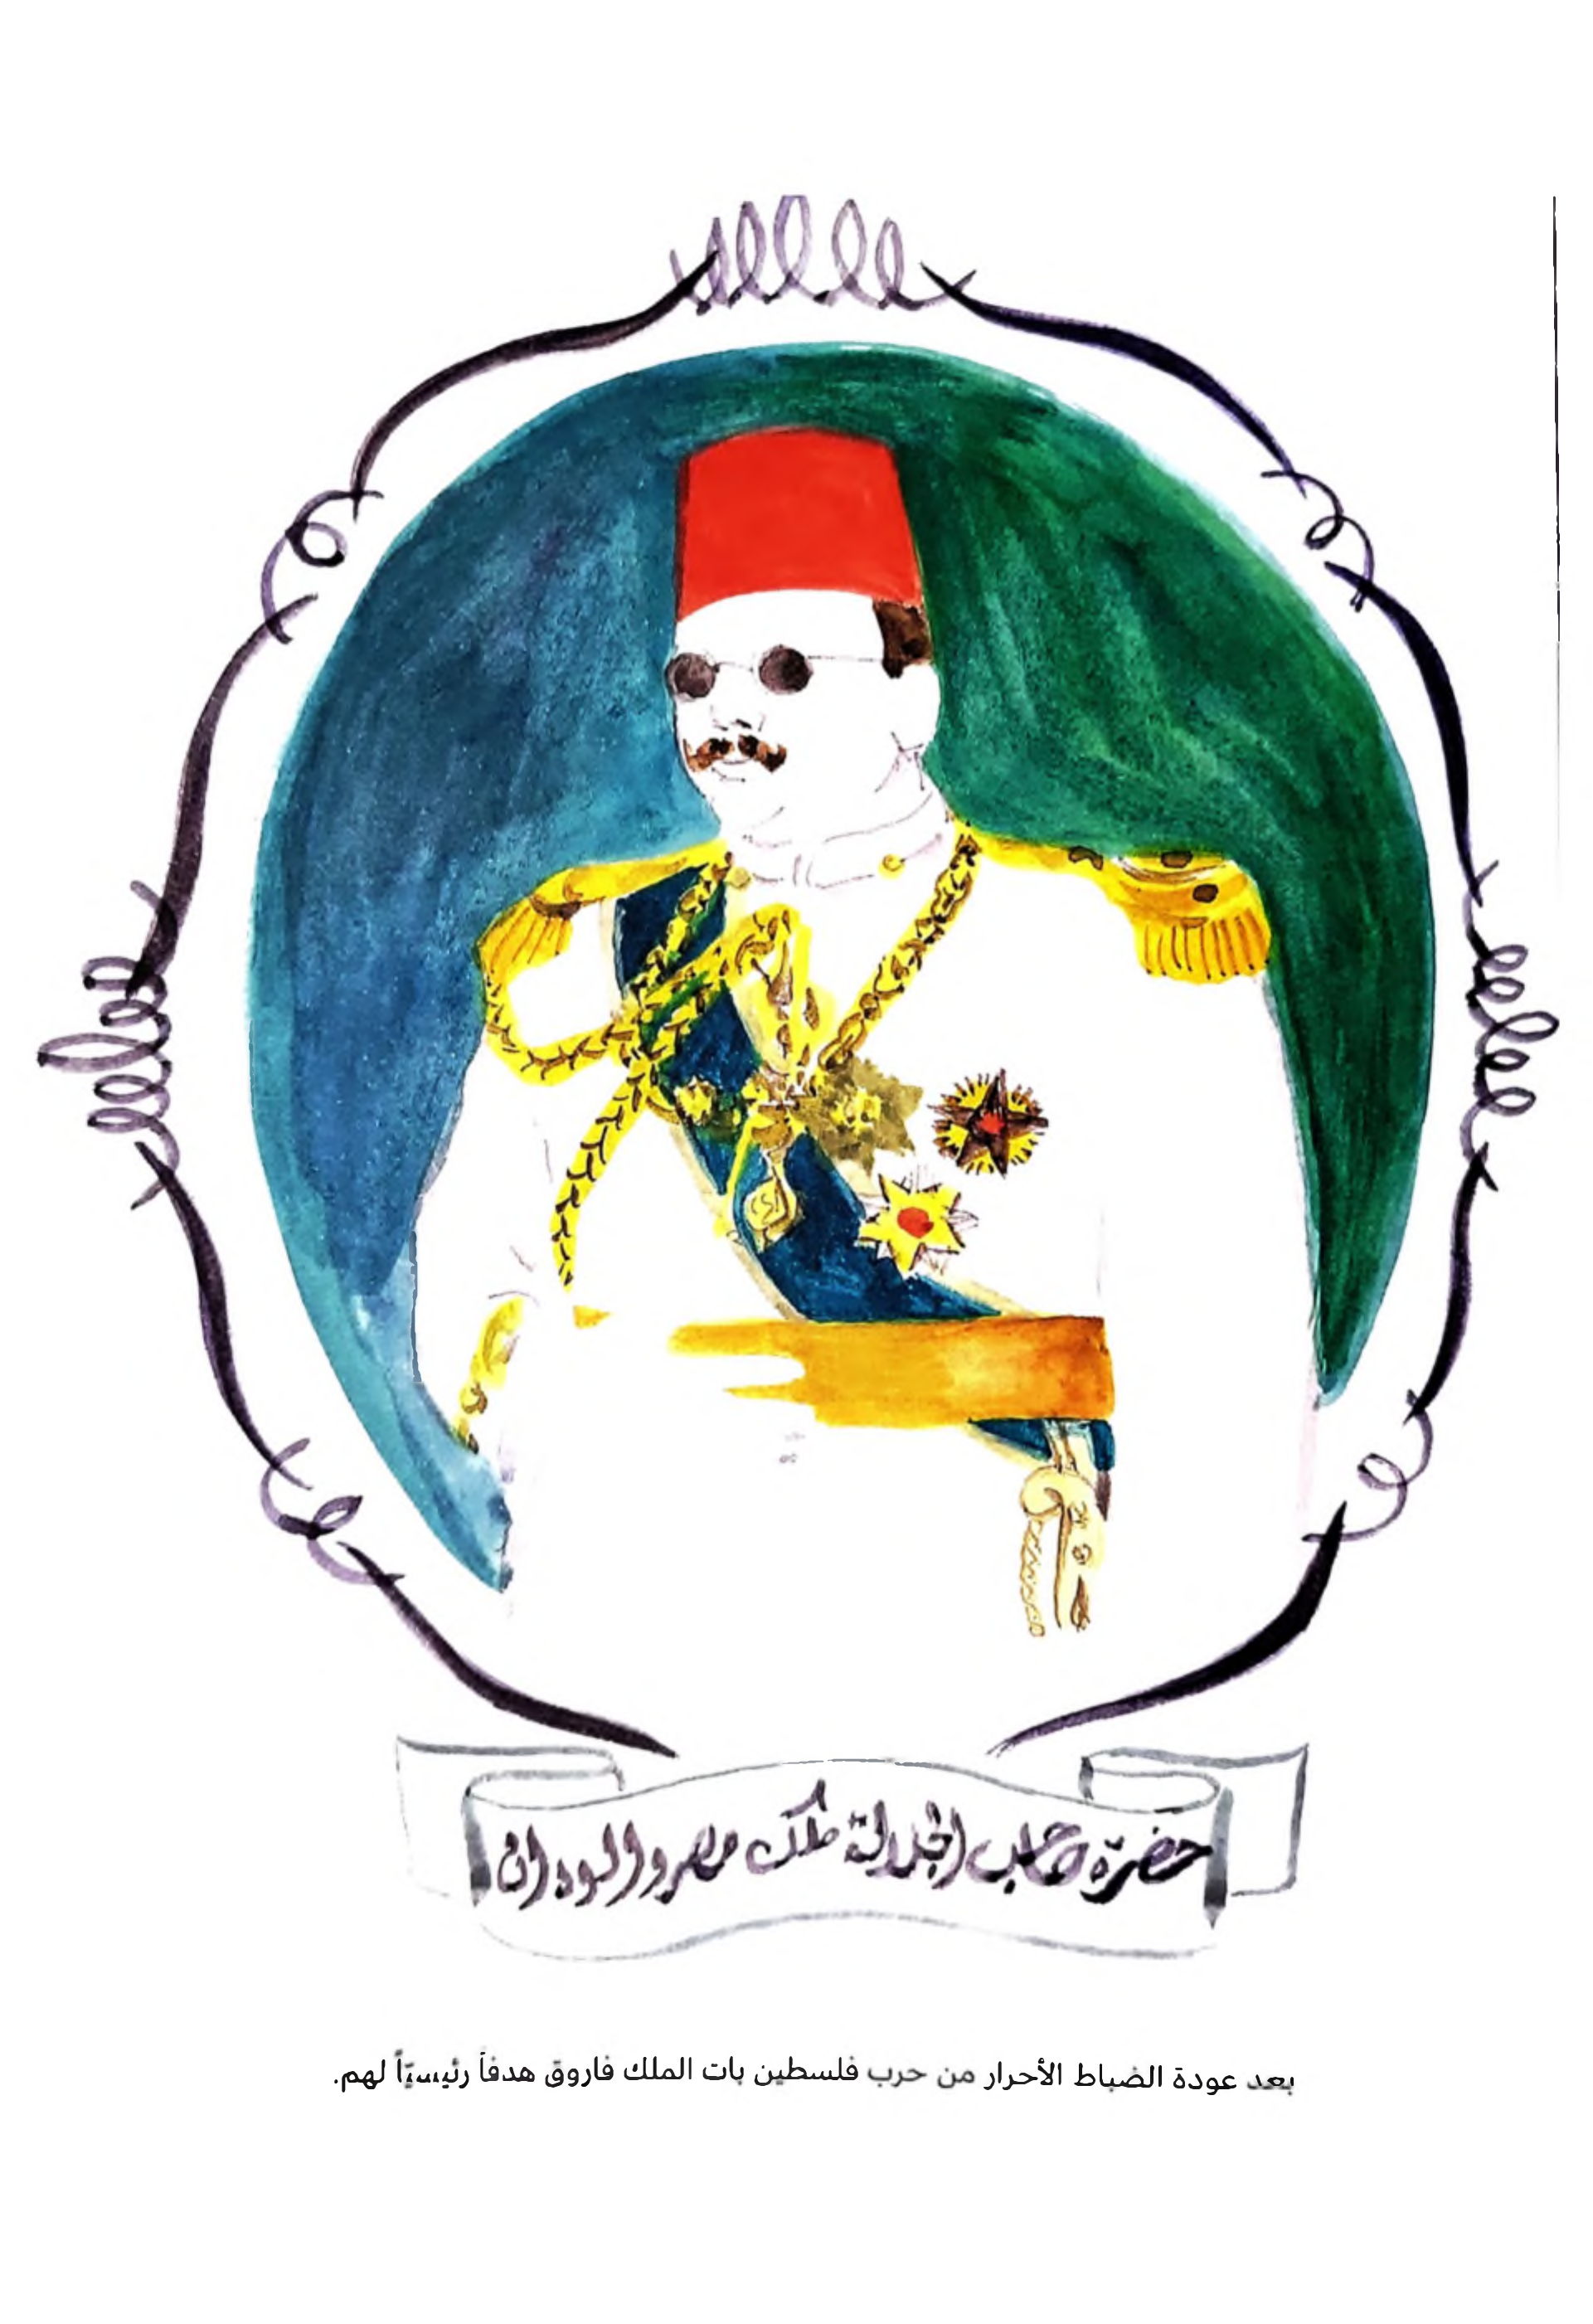 حضرة صاحب الجلالة ملك مصر والسودان
بعد عودة الضباط الأحرار من حرب فلسطين بات الملك فاروق هدفاً رئيسيّاً لهم.